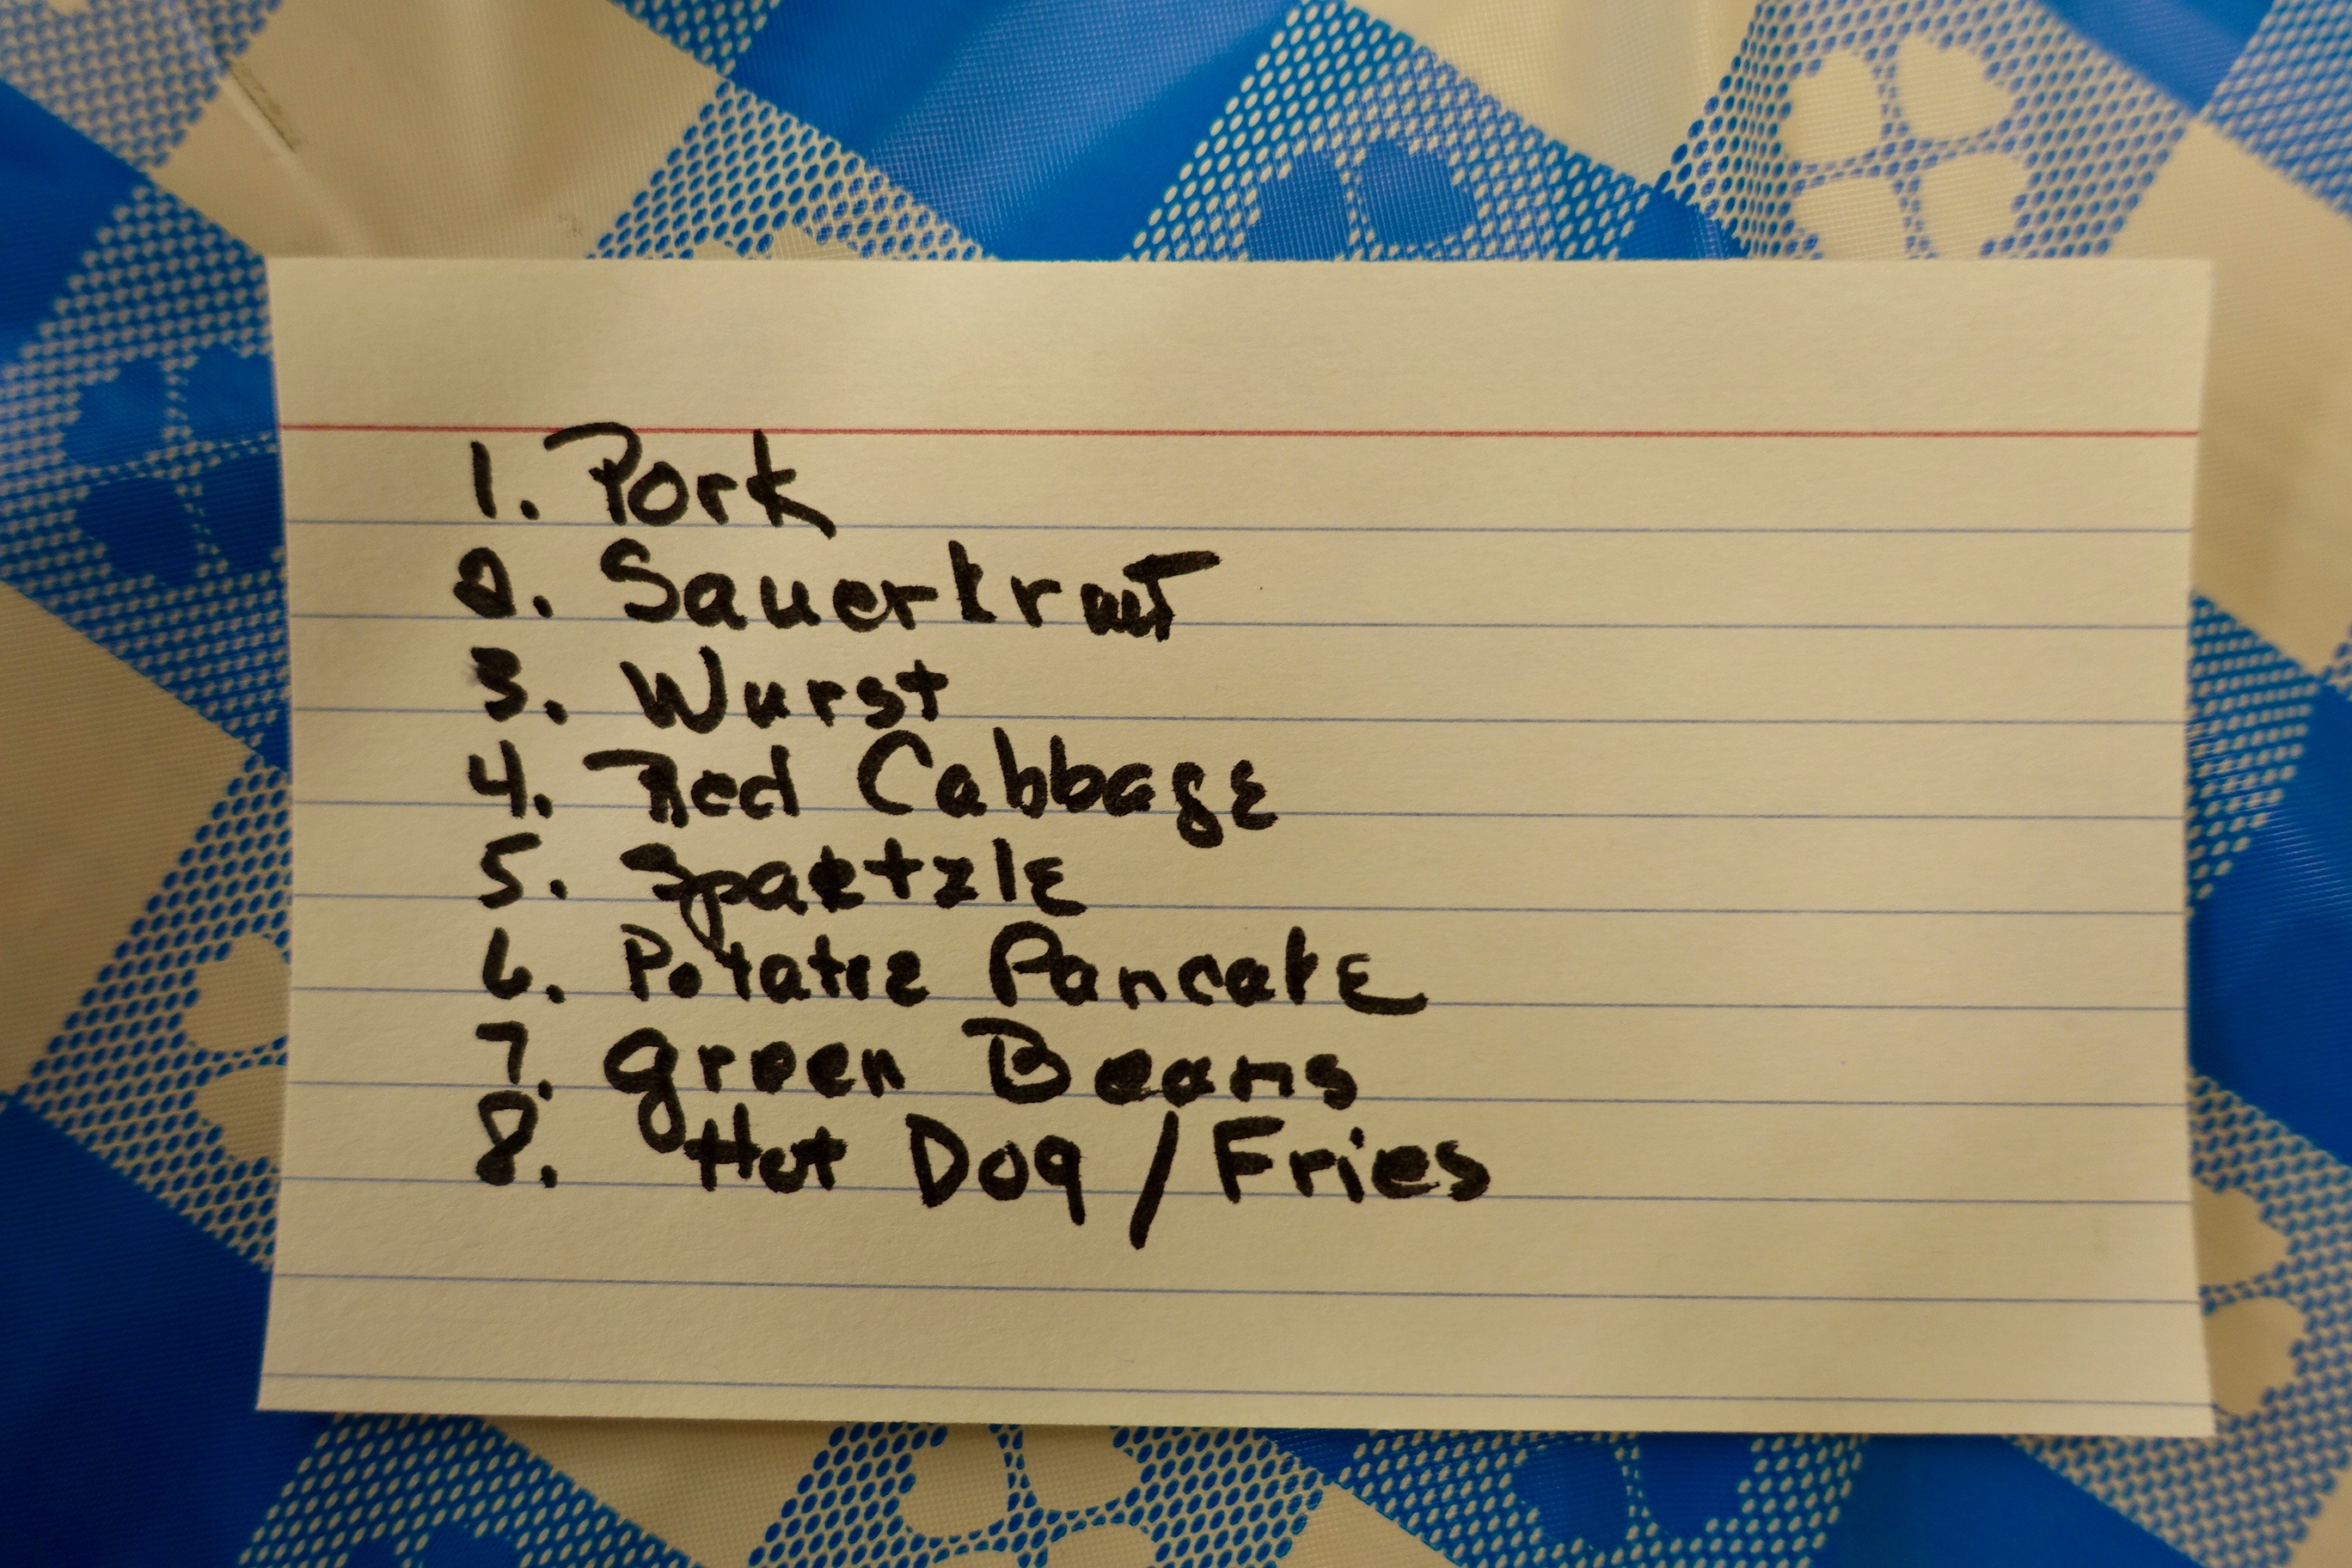 1. Pork
2. Sauerkraut
3. Wurst
4. Red Cabbage
5. Spaetzle
6. Potatoe Pancake
7. green Beans
8. Hot Dog / Fries